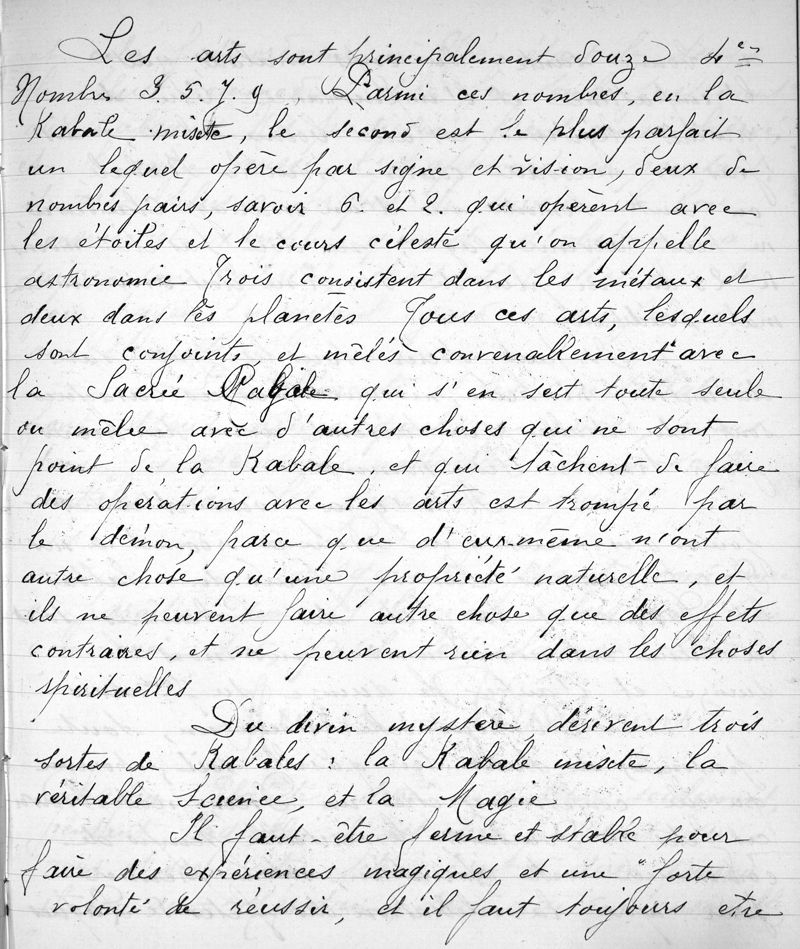 Les arts sont principalement douze 4es
Nombre 3. 5. 7. 9 , Parmi ces nombres, en la
Kabale mixte, le second est le plus parfait
un lequel opère par signe et vision, deux de
nombres pairs, savoir 6. et 2. qui opèrent avec
les étoiles et le cours céleste qu'on appelle
astronomie Trois consistent dans les métaux et
deux dans les planètes Tous ces arts, lesquels
sont conjoints, et mêlés convenablement avec
la Sacrée Kabale qui s'en sert toute seule
ou mêlée avec d'autres choses qui ne sont
point de la Kabale, et qui tâchent de faire
des opérations avec les arts est trompé par
le démon, parce que d'eux-même n'ont
autre chose qu'une propriété naturelle, et
ils ne peuvent faire autre chose que des effets
contraires, et ne peuvent rien dans les choses
spirituelles
Du divin mystère, dérivent trois
sortes de Kabales : la Kabale mixte, la
véritable Science, et la Magie
Il faut-être ferme et stable pour
faire des expériences magiques et une forte
volonté de réussir, et il faut toujours etre